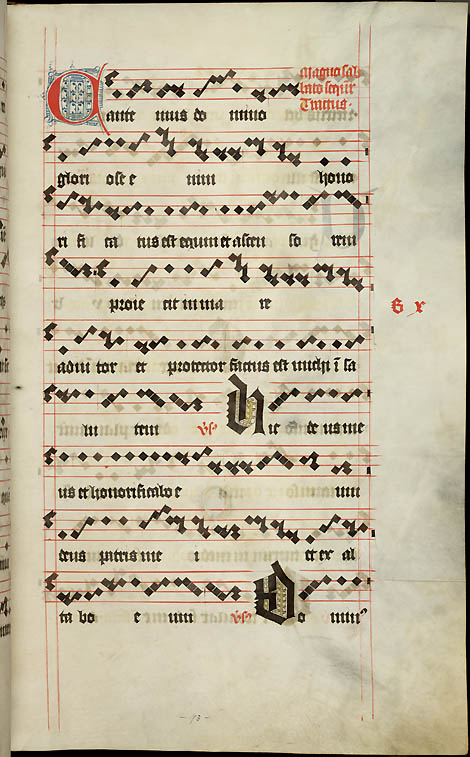 Cante mus do mino
glori ose e nim hono
ri fi ca tus est equum et ascen so rem
proie cit in ma re
adiu tor et protector factus est michi i sa
lu tem vs Hic de us me
us et honorificabo e um
deus patris me i et ex al
ta bo e um vs Do min
G x
93